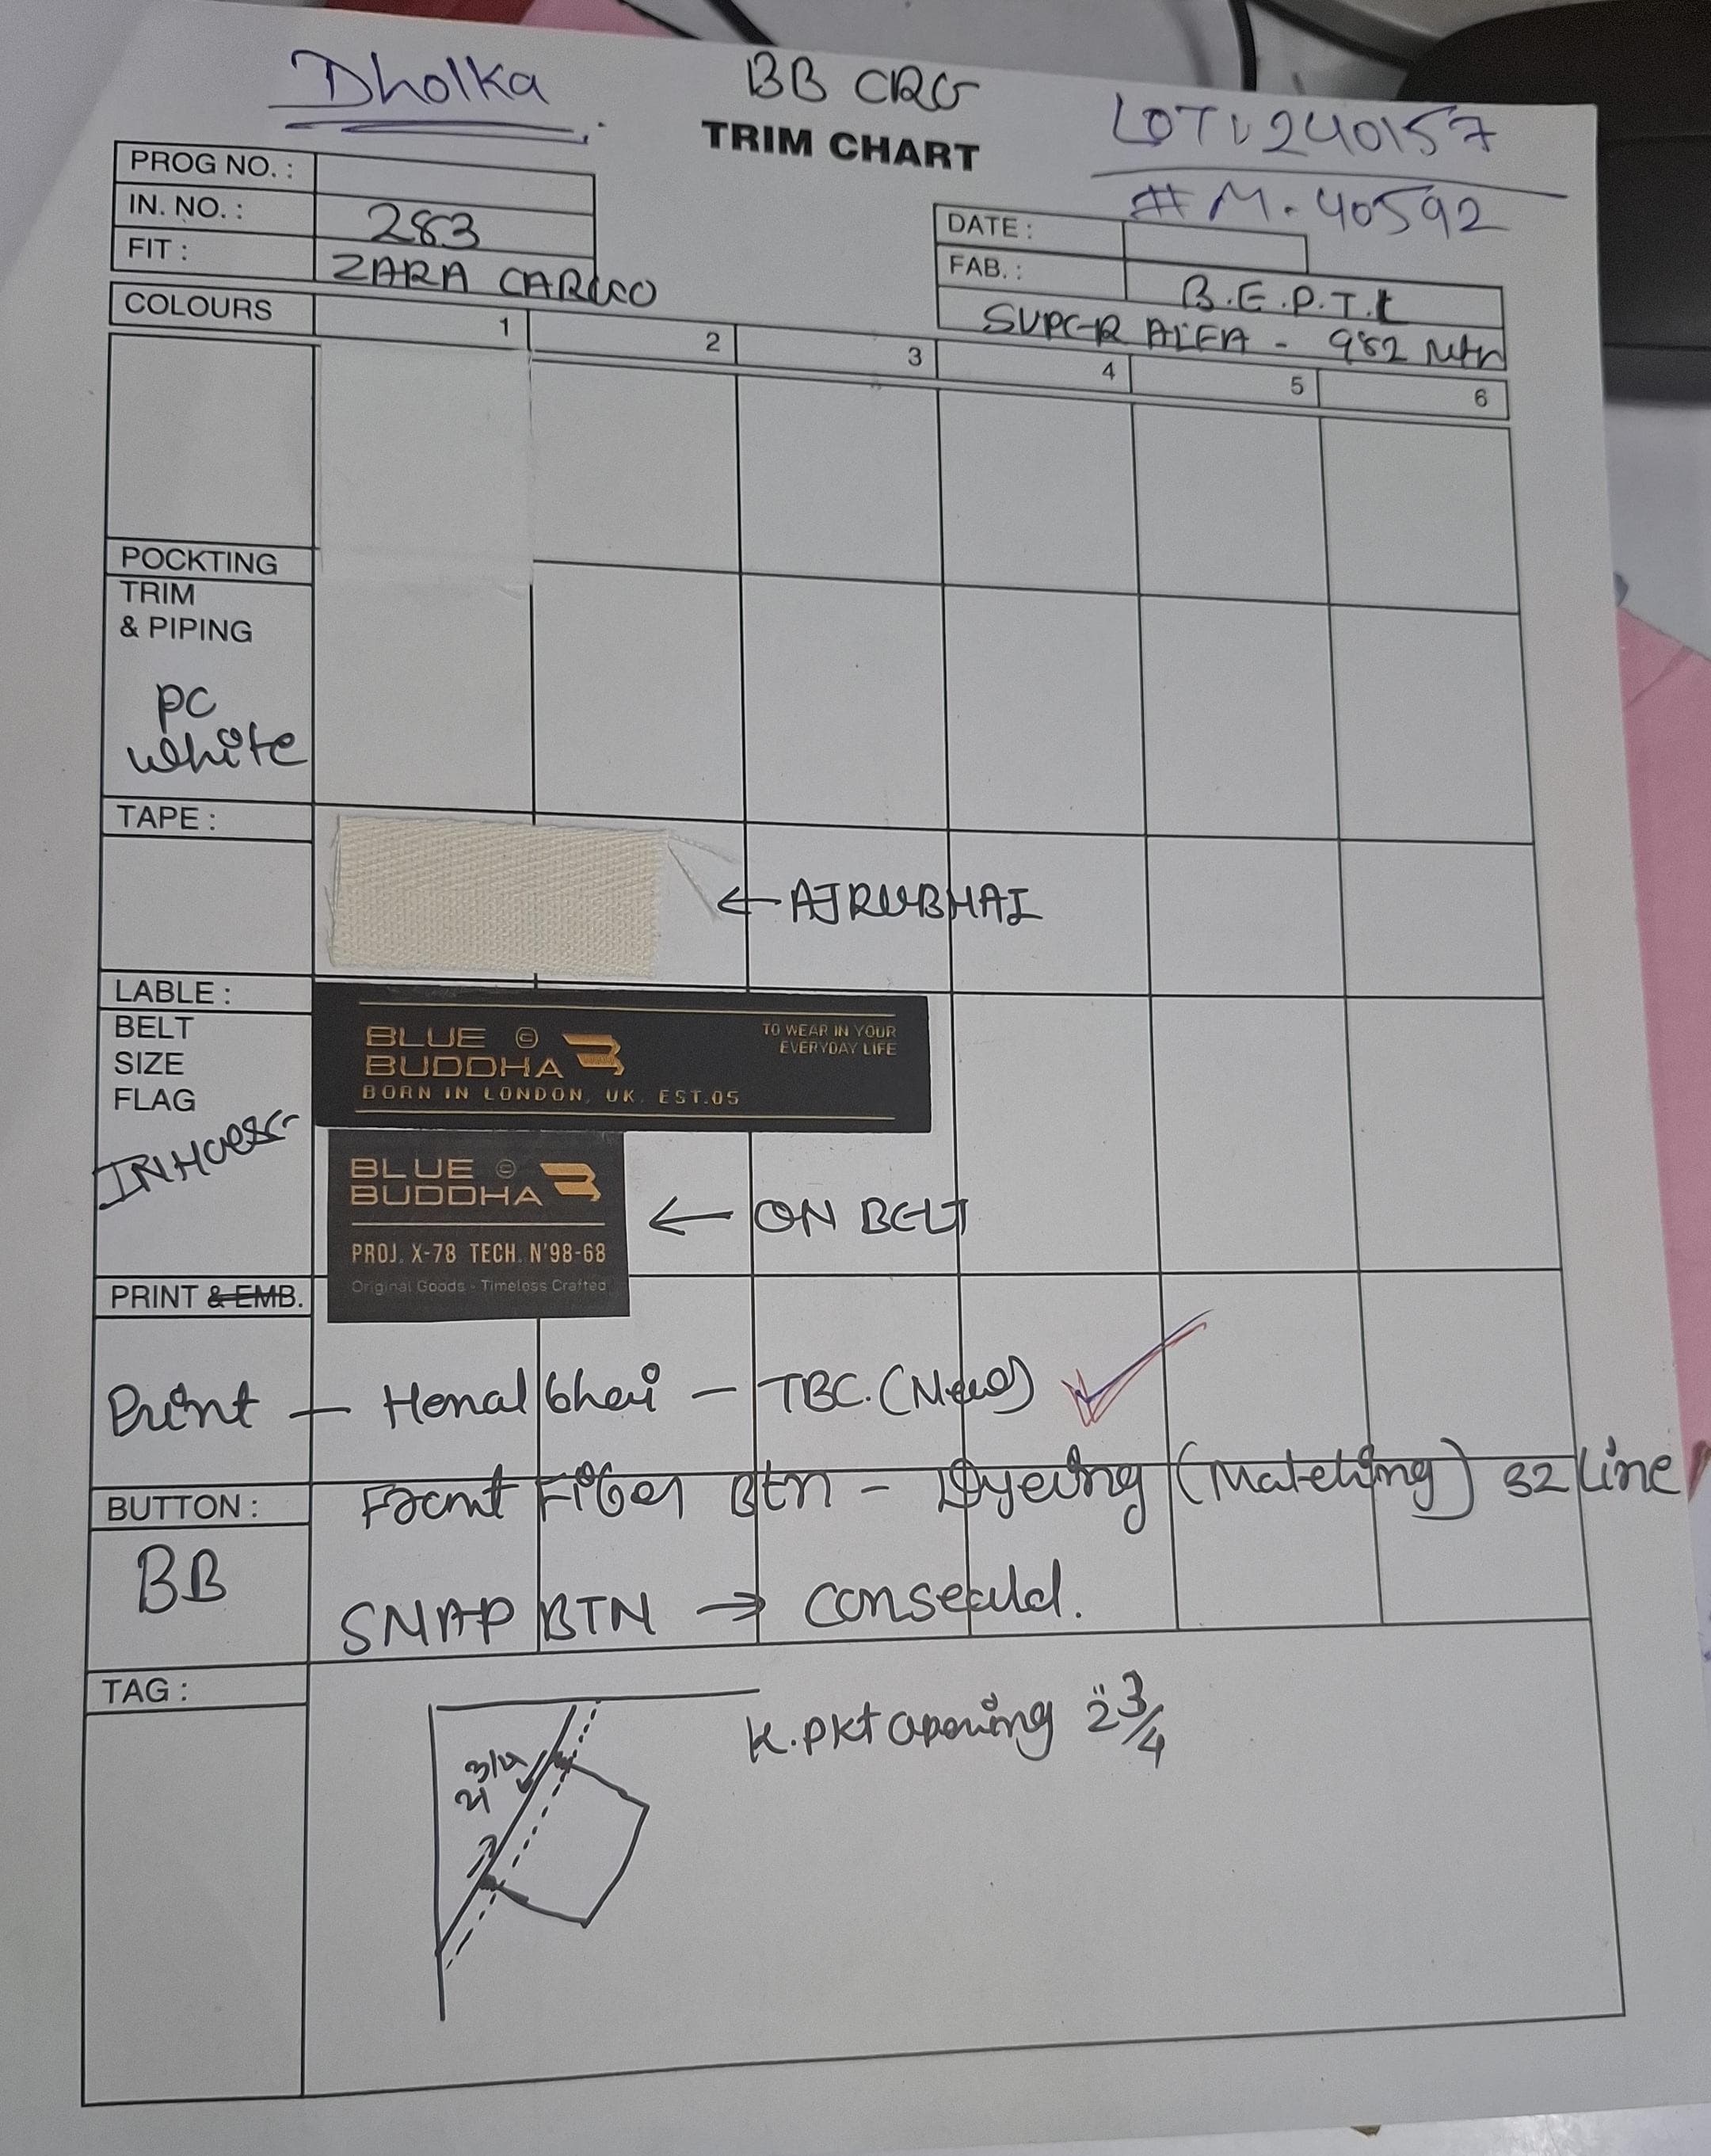 Dholka
BB CRG
LOT: 240157
TRIM CHART
# M. 40592
PROG NO. :
IN. NO. : 283
FIT : ZARA
DATE :
FAB. : B.E.P.T.
SUPER ALFA - 982 Mtr
COLOURS 1 2 3 4 5 6
POCKTING
TRIM
& PIPING
PC
white
TAPE :
← AJRUBHAI
LABLE :
BELT
SIZE
FLAG
BLUE ©
BUDDHA
BORN IN LONDON, UK. EST.05
TO WEAR IN YOUR
EVERYDAY LIFE
BLUE ©
BUDDHA
PROJ. X-78 TECH. N'98-68
Original Goods - Timeless Crafted
← ON BELT
PRINT & EMB.
Print — Henal bhai — TBC. (New)
BUTTON :
Front Fiber Btn - Dyeing (Matching) 32 Line
BB
SNAP BTN → conseald.
TAG :
K.PKT opening 2" 3/4
2 3/4